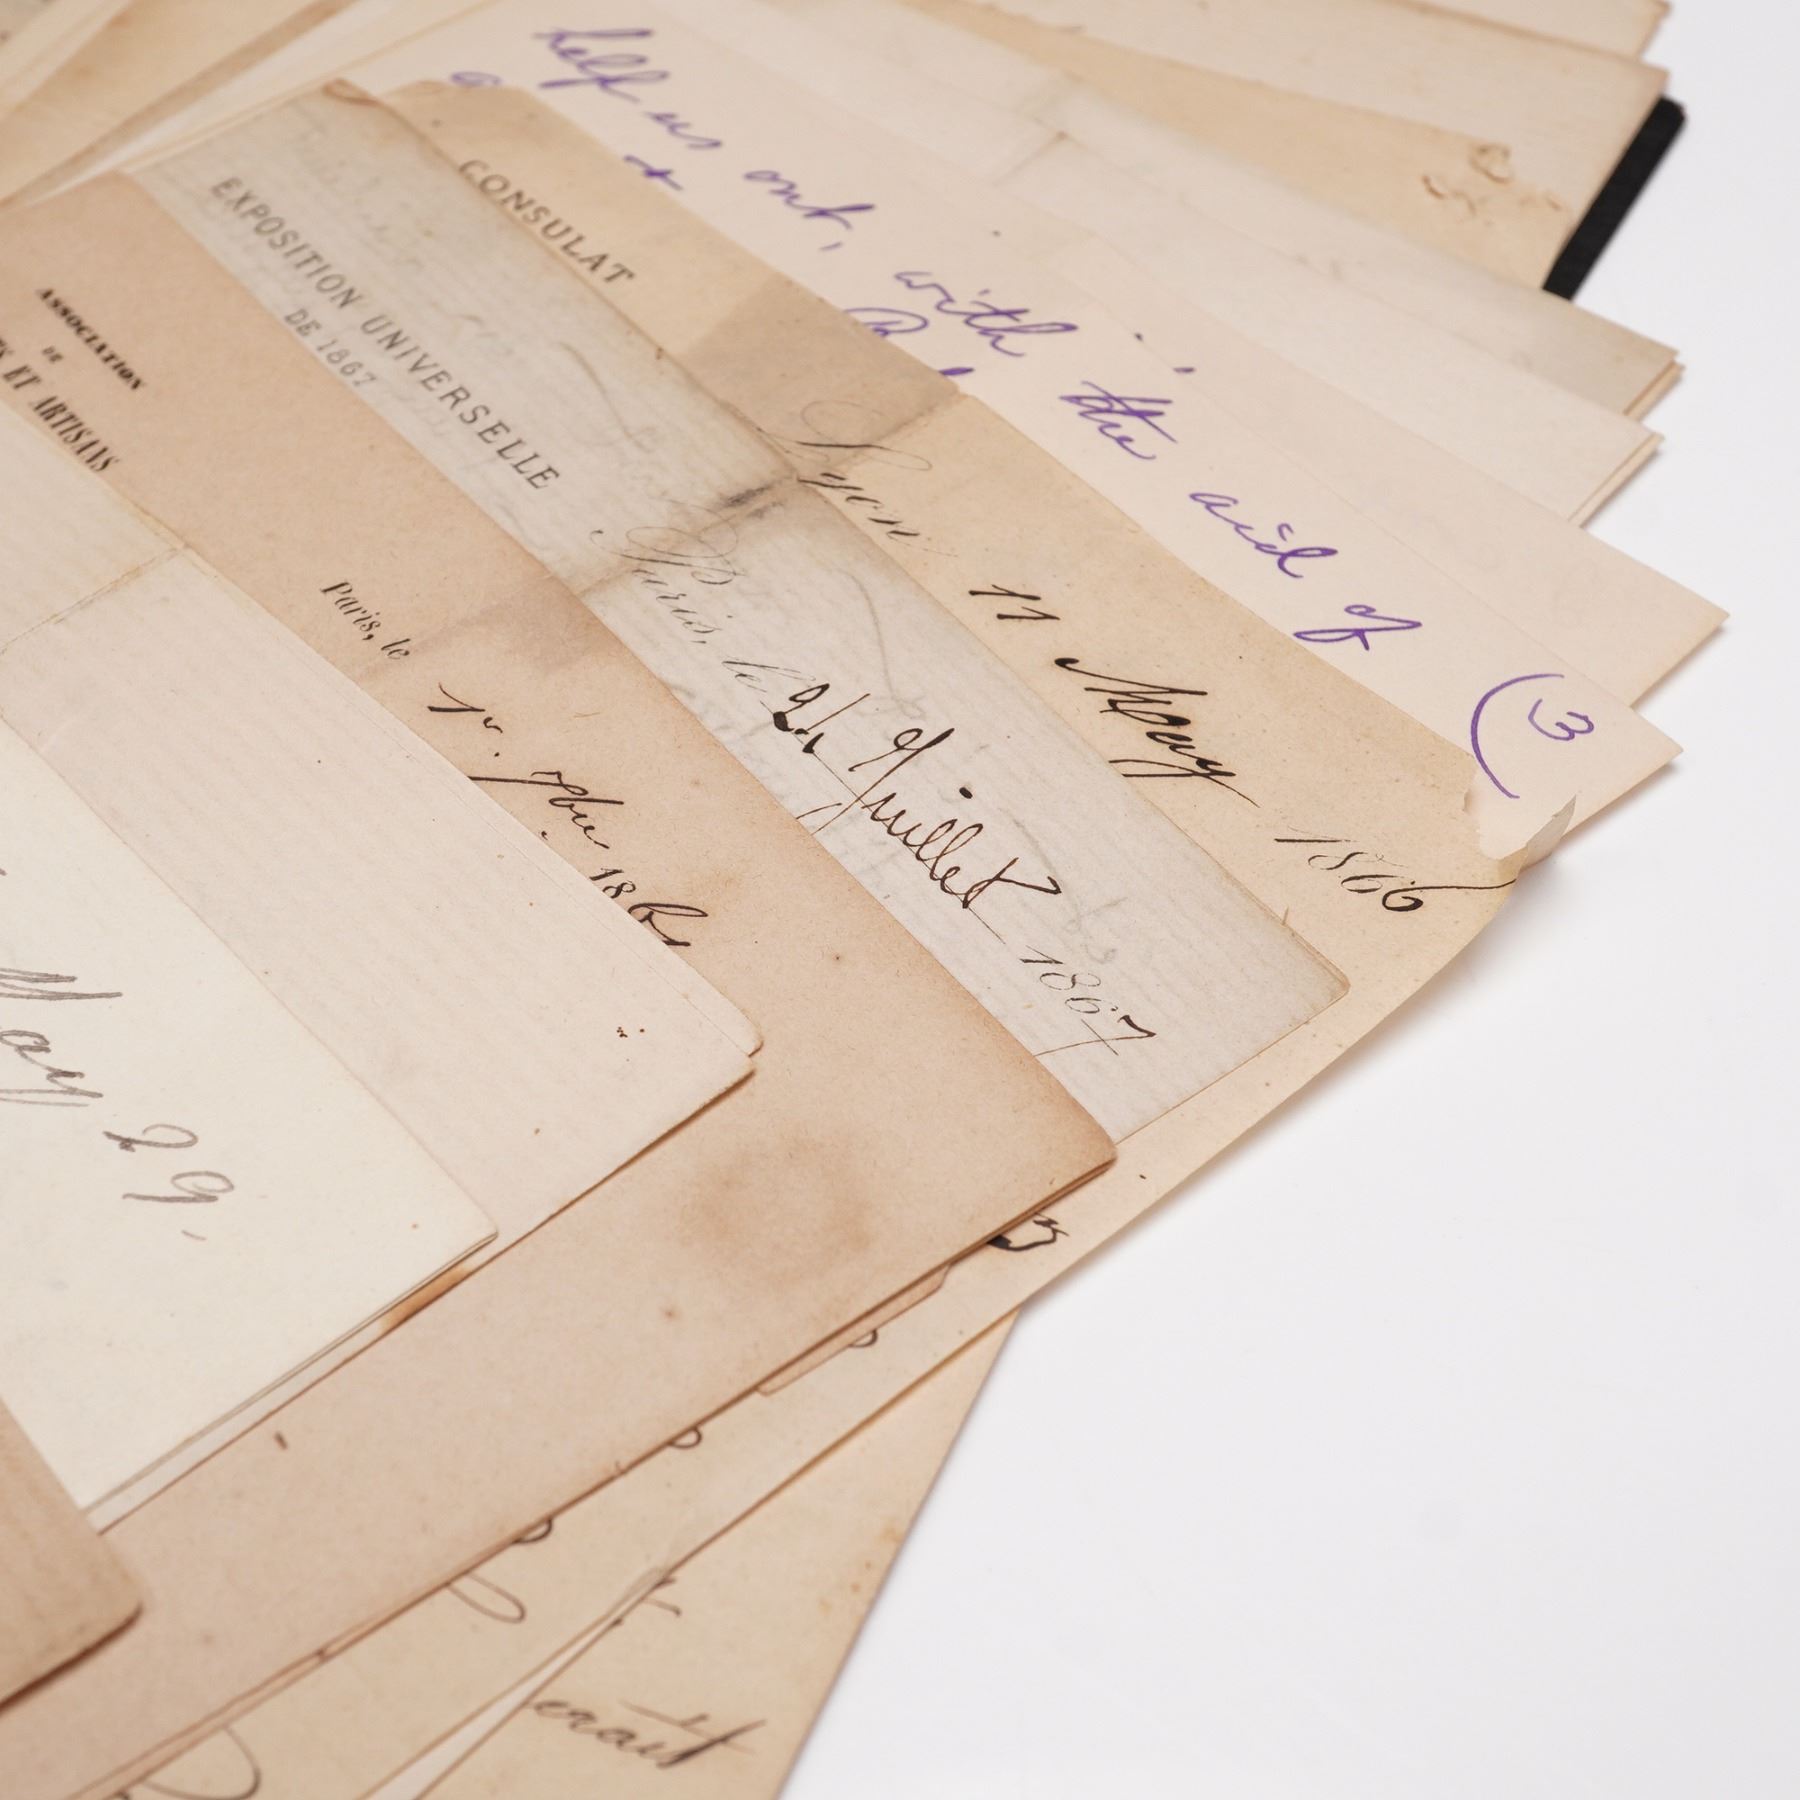 help us ont, with the aid of
(3
CONSULAT
Lyon 11 May 1866
EXPOSITION UNIVERSELLE
DE 1867
Paris, le 24 Juillet 1867
ASSOCIATION
DE
ET ARTISANS
Paris, le 1er. 7bre 186
May 29,
erait